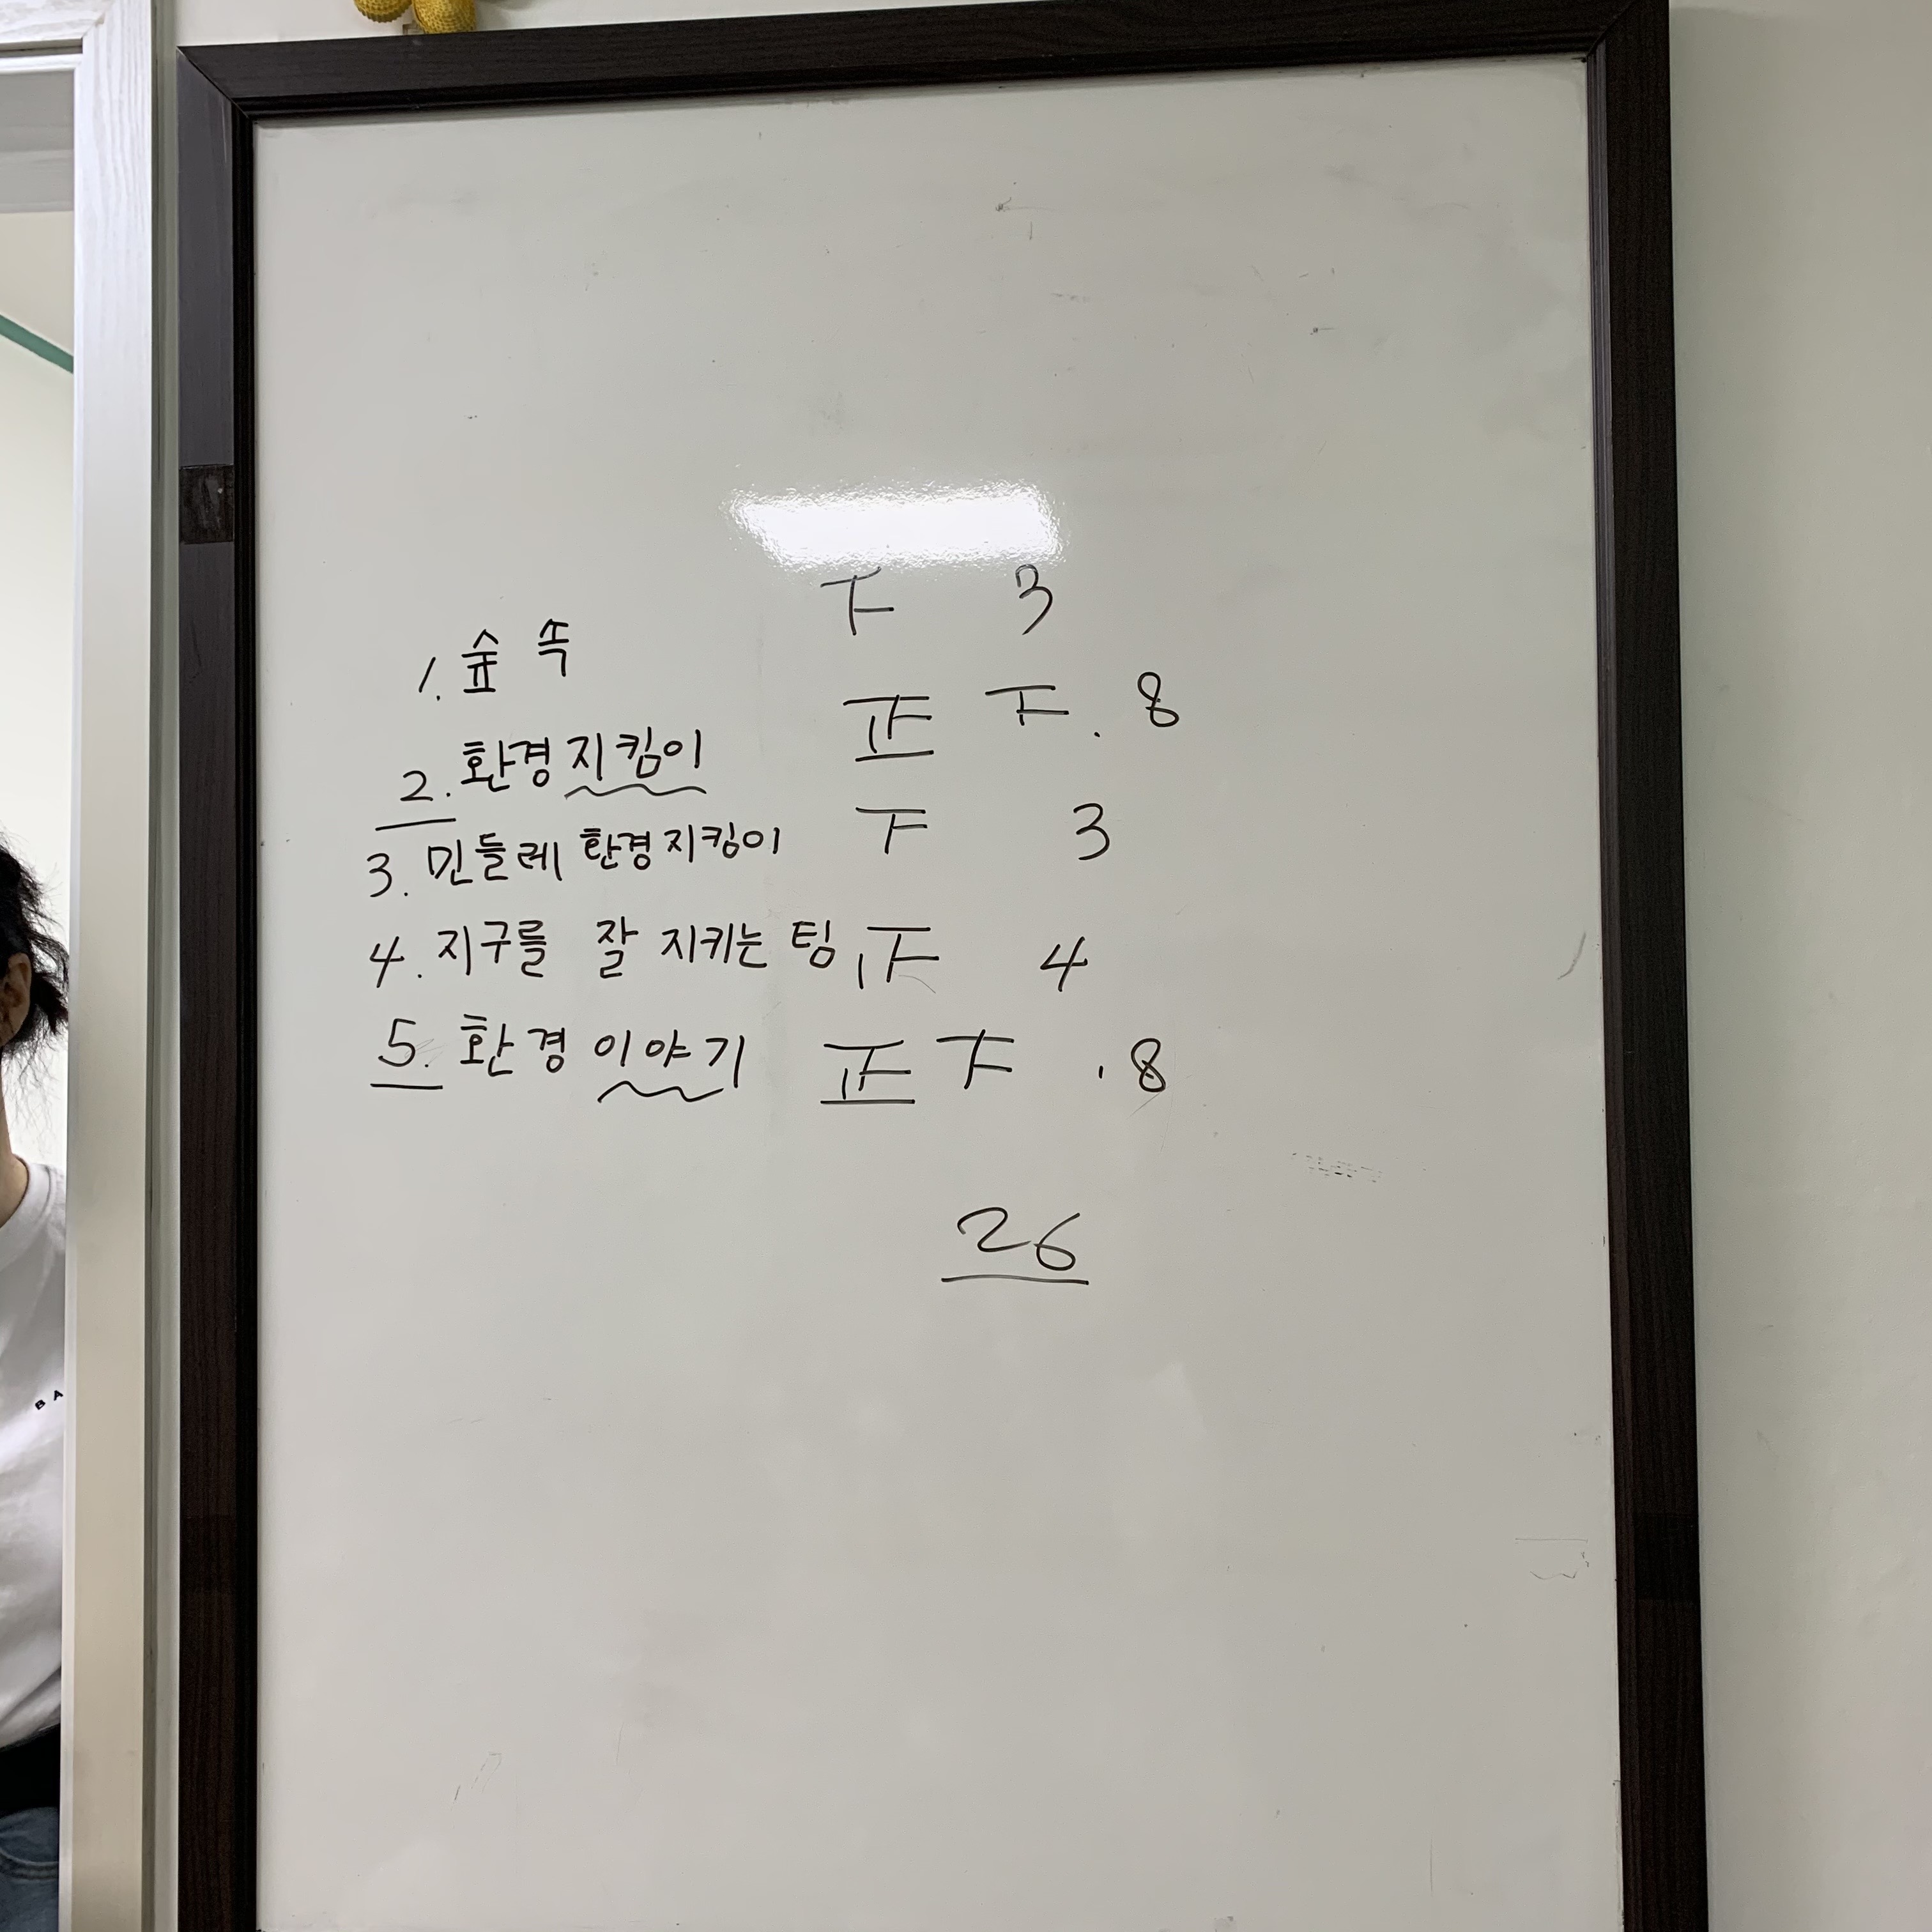 1. 숲 속 下 3
2. 환경지킴이 正 下. 8
3. 민들레 환경지킴이 下 3
4. 지구를 잘 지키는 팀 4
5. 환경 이야기 正 下 . 8
26
B A